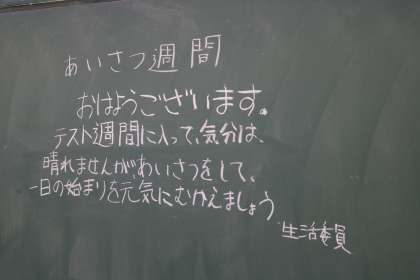 あいさつ週間
おはようございます。
テスト週間に入って、気分は、
晴れませんが、あいさつをして、
一日の始まりを元気にむかえましょう
生活委員